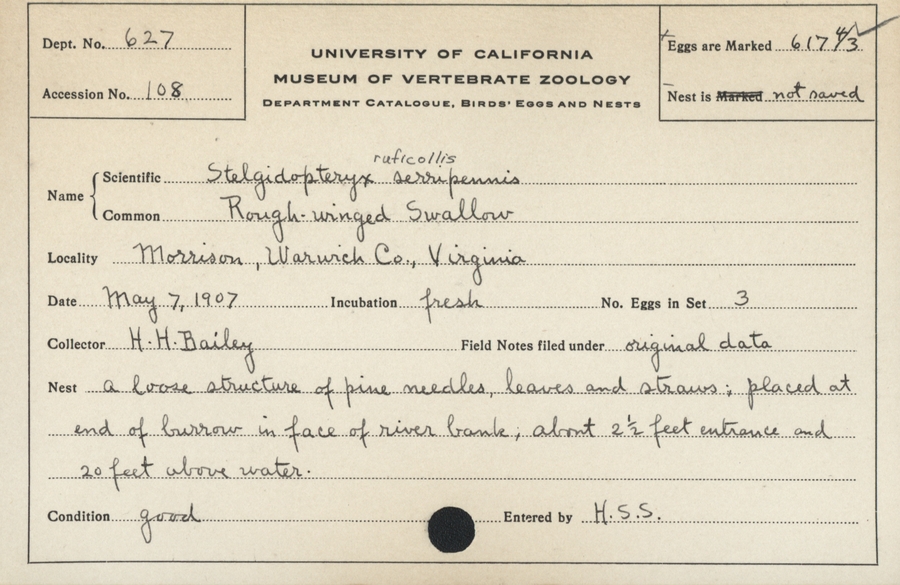 Dept. No. 627
Accession No. 108
UNIVERSITY OF CALIFORNIA
MUSEUM OF VERTEBRATE ZOOLOGY
DEPARTMENT CATALOGUE, BIRDS' EGGS AND NESTS
Eggs are Marked 617 4/3
Nest is Marked not saved
ruficollis
Name Scientific Stelgidopteryx serripennis
Common Rough-winged Swallow
Locality Morrison, Warwich Co., Virginia
Date May 7, 1907 Incubation fresh No. Eggs in Set 3
Collector H.H. Bailey Field Notes filed under original data
Nest a loose structure of pine needles, leaves and straws; placed at
end of burrow in face of river bank; about 2½ feet entrance and
20 feet above water.
Condition good Entered by H.S.S.